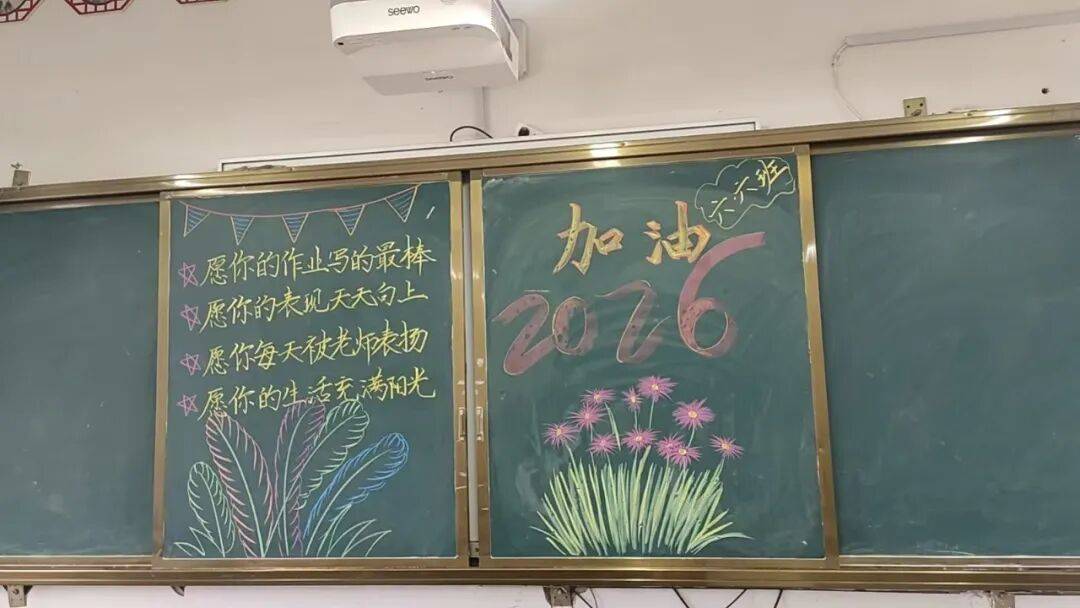 seewo
seewo
愿你的作业写的最棒
愿你的表现天天向上
愿你每天被老师表扬
愿你的生活充满阳光
六六班
加油
2026